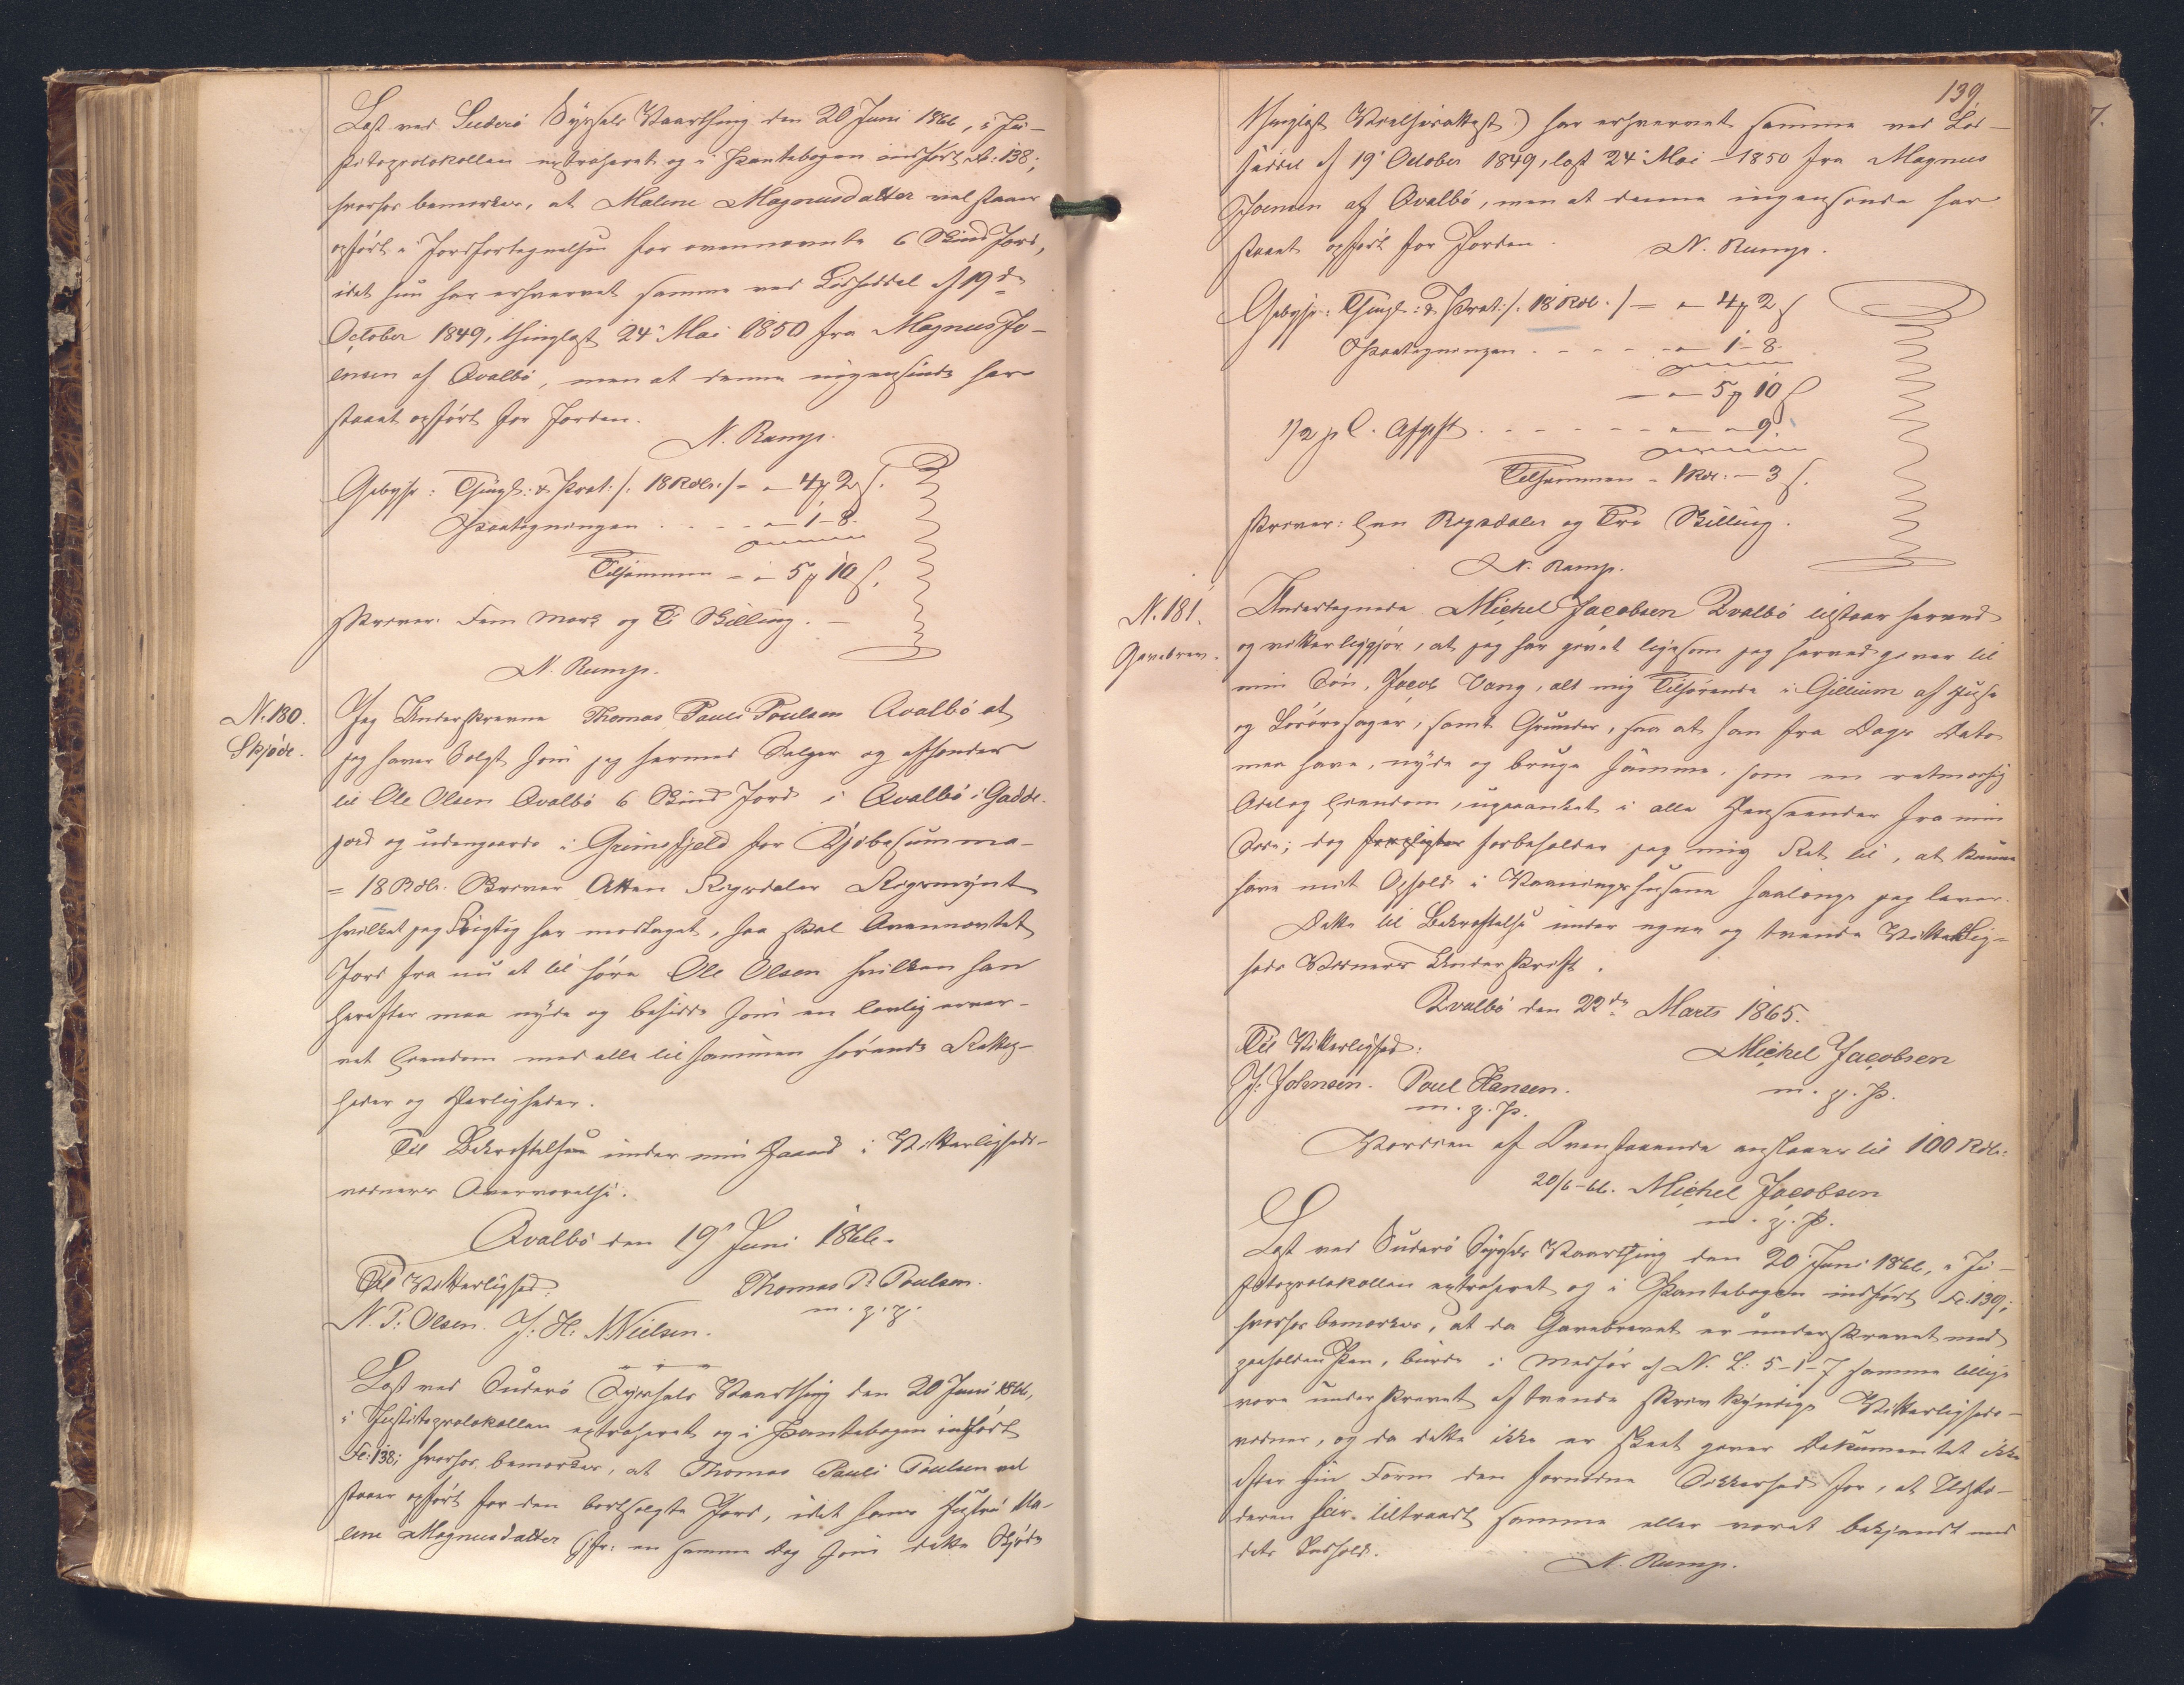 Læst ved Suderö Syssels Vaarthing den 20 Juni 1866, i Ju-
stitsprotokollen extraheret og i Pantebogen indført Fo: 138;
hvorhos bemærkes, at Malene Magnusdatter vel staaer
opført i Jordfortegnelsen for ovennævnte 6 Skind Jord,
idet hun har erhvervet samme ved Lodseddel af 19de
October 1849, thinglæst 24 Mai 1850 fra Magnus Jo-
ensen af Qvalbö, men at denne ingensinde har
staaet opført for Jorden.
N. Rump.
Gebyhr: Thingl: & Prot: /: 18 Rdlr: / - " - 4 ß 2 s.
Paategningen . . . . - " - 1 - 8.
Tilsammen - " - 5 ß 10 s.
skriver: Fem Mark og Ti Skilling. -
N. Rump.
N. 180.
Skjøde.
Jeg Underskrevne Thomas Pauli Poulsen Qvalbö at
jeg haver Solgt som jeg hermed Sælger og afhænder
til Ole Olsen Qvalbö 6 Skind Jord i Qvalbö i Gadde-
jord og udengaards i Grimsfjeld for Kjøbesumma-
= 18 Rdlr. Skriver Atten Rigsdaler Rigsmynt
hvilket jeg Rigtig har modtaget, saa skal Ovennævntet
Jord fra nu at til høre Ole Olsen hvilken han
herefter maa nyde og besidde som en lovlig erver-
vet Eiendom med alle til sammen hørende Rettig-
heder og Herligheder.
Til Bekræftelsen under min Haand i Vitterligheds-
vidners Overværelse.
Qvalbö den 19 Juni 1866.
Til Vitterlighed:
Thomas P. Poulsen.
N. P: Olsen. J: H: Nielsen.
m. p. p.
Læst ved Suderö Syssels Vaarthing den 20 Juni 1866,
i Justitsprotokollen extraheret og i Pantebogen indført
Fo: 138; hvorhos bemærkes, at Thomas Pauli Poulsen vel
staaer opført for den bortsolgte Jord, idet hans Hustru Ma-
lene Magnusdatter (jfr: en samme Dag som dette Skjøde
139
thinglæst Vielsesattest) har erhvervet samme ved Lod-
seddel af 19 October 1849, læst 24 Mai 1850 fra Magnus
Joensen af Qvalbö, men at denne ingensinde har
staaet opført for Jorden.
N. Rump.
Gebyhr: Thingl: & Prot: /: 18 Rdl. / - " - 4 ß 2 s
Paategningen . - - - - " - 1 - 8.
- " - 5 ß 10 s
1/2 p C. Afgift . - - - - - " - 9.
Tilsammen - 1 Rdl. - 3 s.
skriver: Een Rigsdaler og Tre Skilling.
N. Rump.
N. 181.
Gavebrev.
Undertegnede Michel Jacobsen Qvalbö tilstaar herved
og vitterliggjör, at jeg har givet ligesom jeg herved giver til
min Sön, Jacob Vang, alt mig Tilhörende i Gillium af Huse
og Lösöresager, samt Grunder, saa at han fra Dags Dato
maa have, nyde og bruge samme, som en retmæssig
Odel og Eiendom, upaaanket i alle Henseender fra min
Side; dog forpligter forbeholder jeg mig Ret til, at kunne
have mit Ophold i Vaaningshusene saalænge jeg lever.
Dette til Bekræftelse under egen og tvende Vitterlig-
heds Vidners Underskrift.
Qvalbö den 22de Marts 1865.
Til Vitterlighed:
Michel Jacobsen
J: Johensen. Poul Hansen.
m. p. P.
m. p. P.
Værdien af Ovenstaaende anslaaes til 100 Rdlr:
20/6-66. Michel Jacobsen
m. p. P.
Læst ved Suderö Syssels Vaarthing den 20 Juni 1866, i Ju-
stitsprotokollen extraheret og i Pantebogen indført Fo: 139;
hvorhos bemærkes, at da Gavebrevet er underskrevet med
paaholden Pen, burde i Medhør af N. L: 5-1-7 samme tillige
være underskrevet af tvende skrivkyndige Vitterligheds-
vidner, og da dette ikke er skeet giver Dokumentet ikke
efter sin Form den fornødne Sikkerhed for, at Udste-
deren har tiltraadt samme eller været bekjendt med
dets Indhold.
N. Rump.